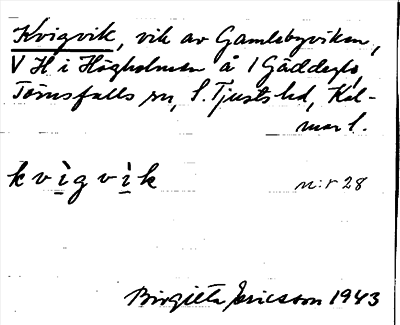 Kvigvik, vik av Gamlebyviken,
V H i Högholmen å 1 Gäddeglo,
Törnsfalls sn, S. Tjusts hd, Kal-
mar l.
kvìgvìk
n:r 28
Birgitta Ericsson 1943